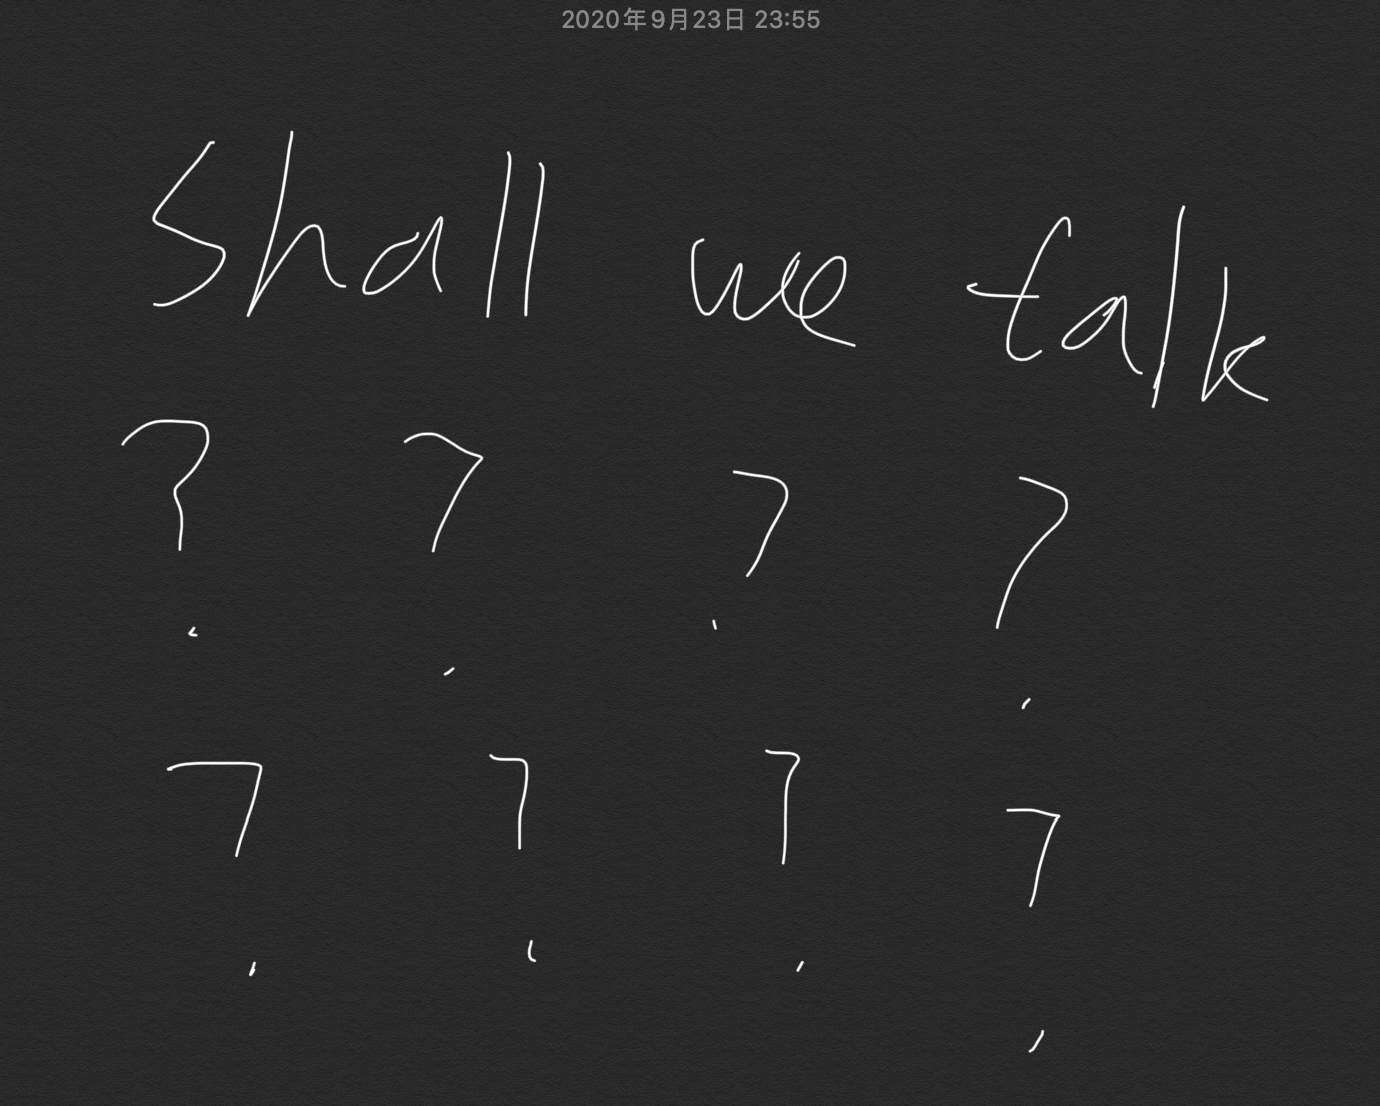 2020年9月23日 23:55
Shall we talk
? ? ? ?
? ? ? ?